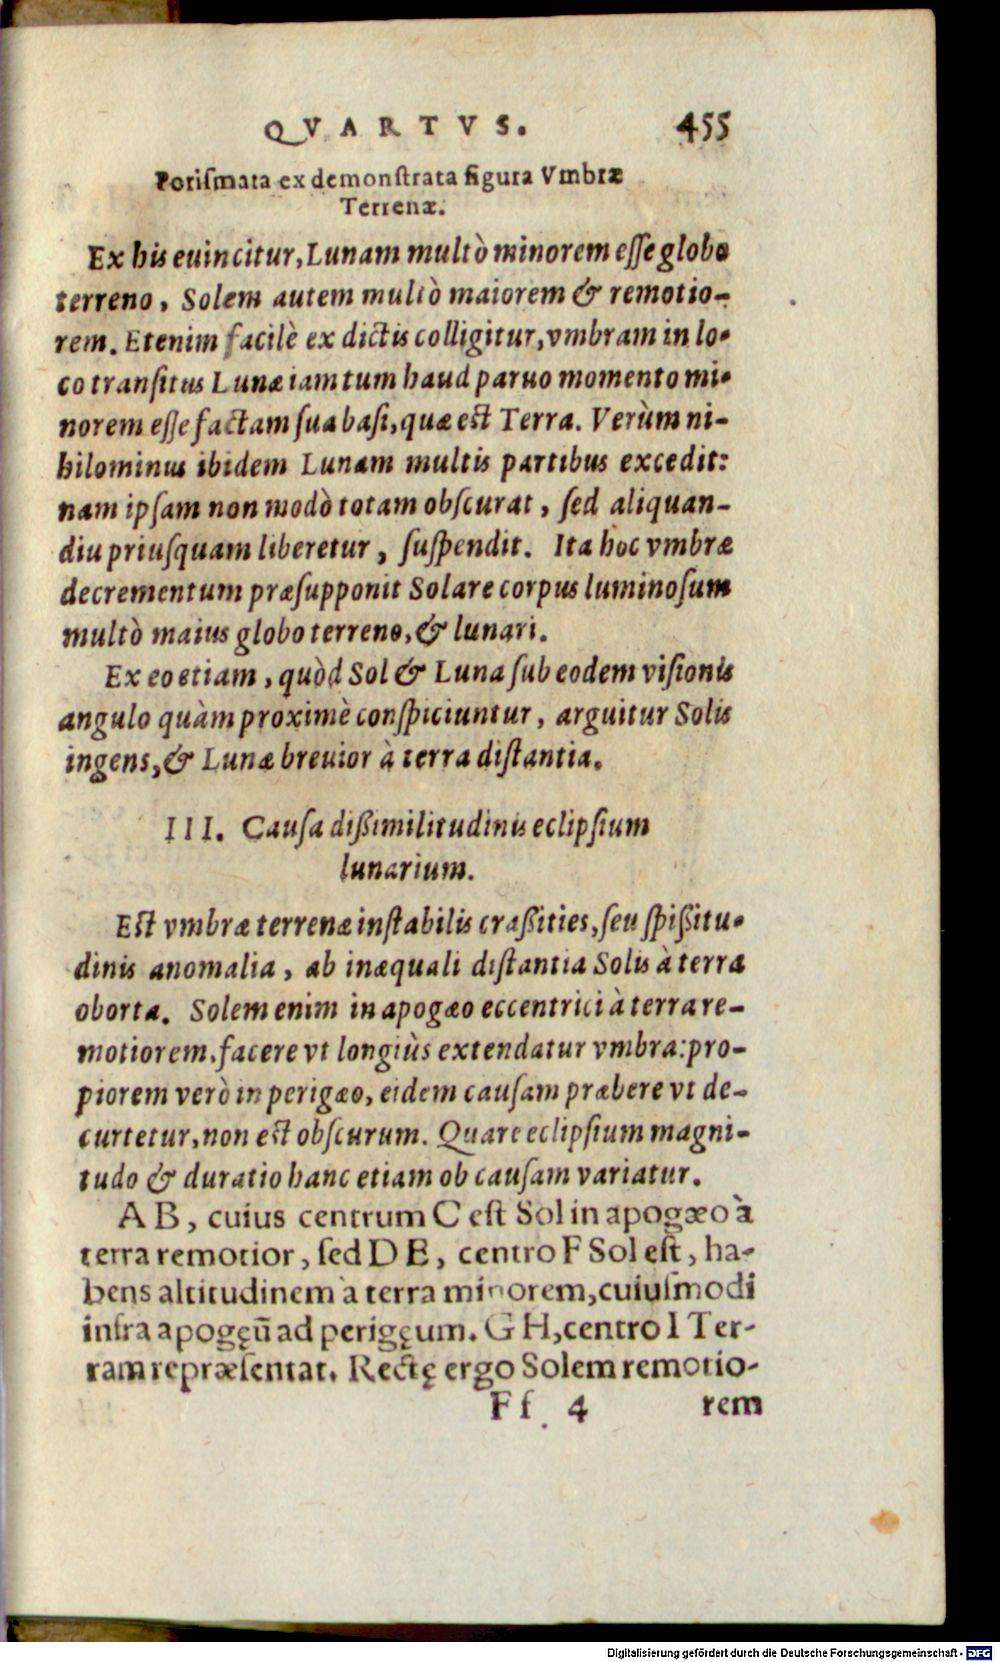 QVARTVS. 455
Poriſmata ex demonſtrata figura Vmbræ
Terrenæ.
Ex his euincitur, Lunam multò minorem eſſe globo
terreno, Solem autem multò maiorem & remotio-
rem. Etenim facilè ex dictis colligitur, vmbram in lo-
co tranſitus Lunæ iam tum haud paruo momento mi-
norem eſſe factam ſua baſi, quæ est Terra. Verùm ni-
hilominus ibidem Lunam multis partibus excedit:
nam ipſam non modò totam obſcurat, ſed aliquan-
diu priuſquam liberetur, ſuſpendit. Ita hoc vmbræ
decrementum præſupponit Solare corpus luminoſum
multò maius globo terreno, & lunari.
Ex eo etiam, quòd Sol & Luna ſub eodem viſionis
angulo quàm proximè conſpiciuntur, arguitur Solis
ingens, & Lunæ breuior à terra diſtantia.
III. Cauſa dißimilitudinis eclipſium
lunarium.
Est vmbræ terrenæ inſtabilis craßities, ſeu ſpißitu-
dinis anomalia, ab inæquali diſtantia Solis à terra
oborta. Solem enim in apogæo eccentrici à terra re-
motiorem, facere vt longiùs extendatur vmbra: pro-
piorem verò in perigæo, eidem cauſam præbere vt de-
curtetur, non est obſcurum. Quare eclipſium magni-
tudo & duratio hanc etiam ob cauſam variatur.
A B, cuius centrum C eſt Sol in apogæo à
terra remotior, ſed D E, centro F Sol eſt, ha-
bens altitudinem à terra minorem, cuiuſmodi
infra apogęū ad perigęum. G H, centro I Ter-
ram repræſentat. Rectę ergo Solem remotio-
Ff 4 rem
Digitalisierung gefördert durch die Deutsche Forschungsgemeinschaft - DFG